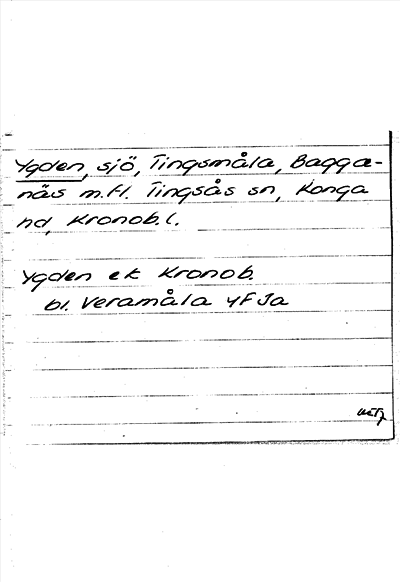 Ygden, sjö, Tingsmåla, Bagga-
näs m.fl. Tingsås sn, Konga
hd, Kronob.l.
Ygden ek Kronob.
bl. Veramåla 4F Ja